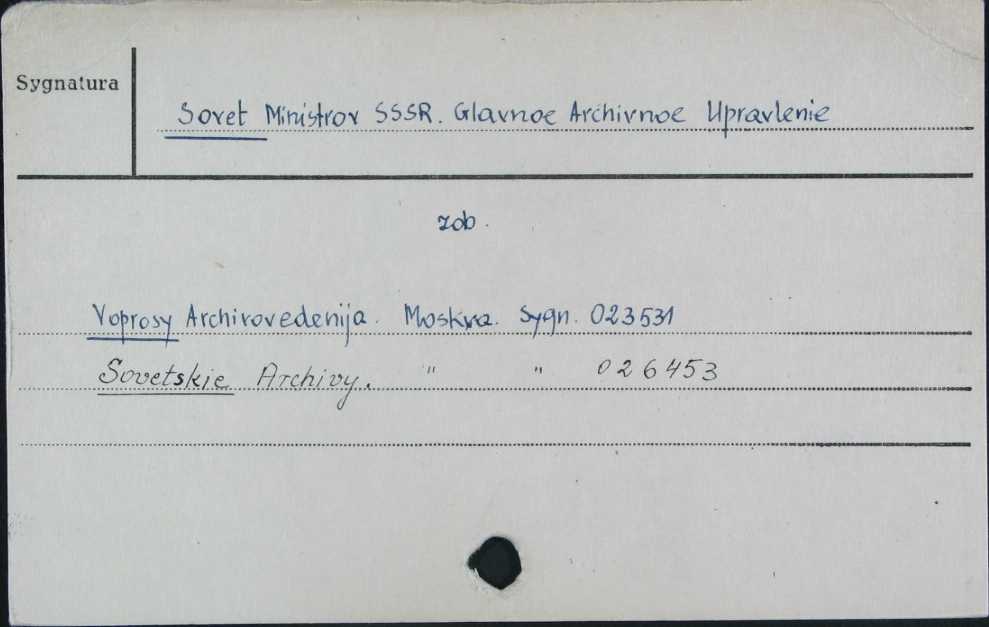 Sygnatura
Sovet Ministrov SSSR. Glavnoe Archivnoe Upravlenie
zob.
Voprosy Archivovedenija. Moskva. Sygn. 023531
Sovetskie Archivy. " " 026453